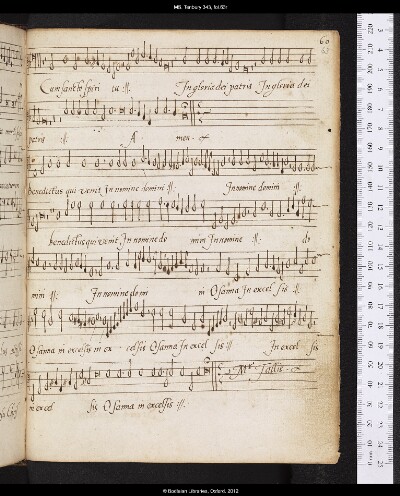 MS. Tenbury 343, fol.62r
60
Cum sancto spiri tu :||: In gloria dei patris In gloria dei
patris :||: A men
benedictus qui venit In nomine domini :||: In nomine domini :||:
benedictus qui venit In nomine do mini In nomine :||: do
mini :||: In nomine domi ni Osanna In excel sis :||:
Osanna in excelsis in ex celsis Osanna In excel sis :||: In excel sis
in excel sis Osanna in excelsis :||:
© Bodleian Libraries, Oxford, 2012